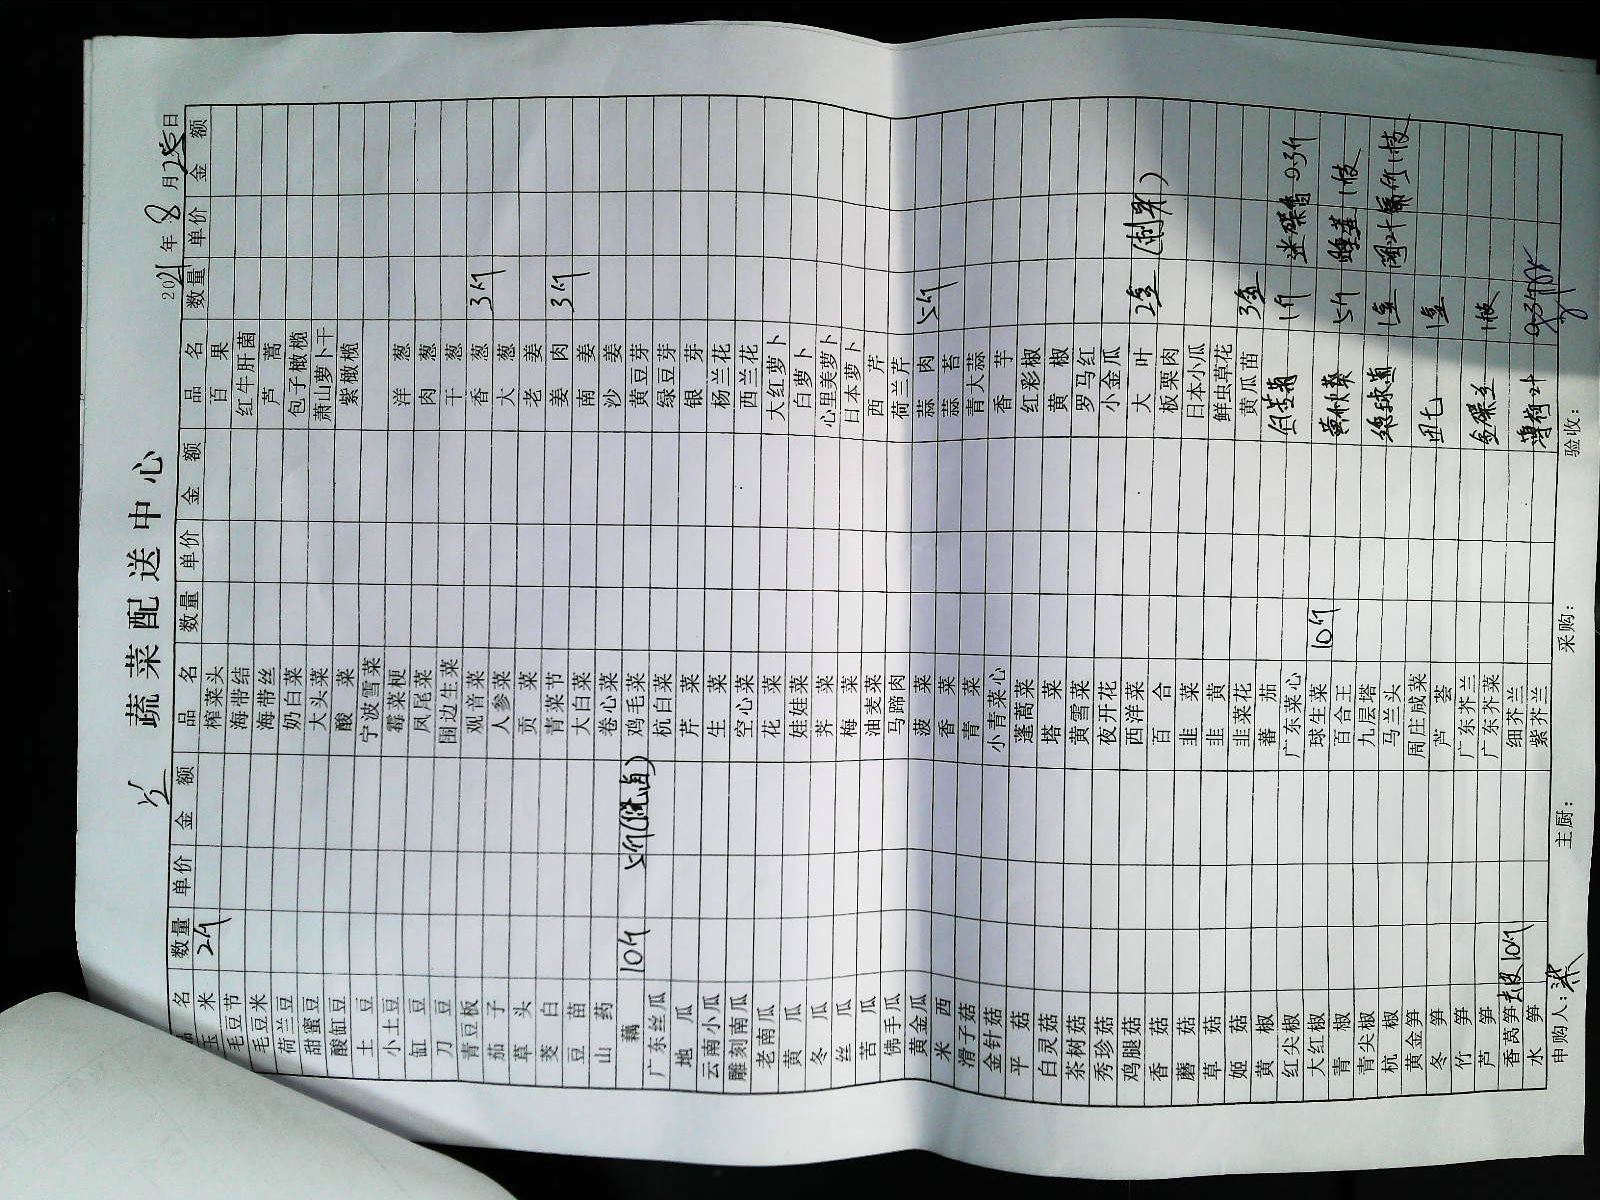 蔬菜配送中心
2021年8月25日
品名 数量 单价 金额 品名 数量 单价 金额 品名 数量 单价 金额
玉米 2斤 榨菜头 百果
毛豆节 海带结 红牛肝菌
毛豆米 海带丝 芦蒿
荷兰豆 奶白菜 包子橄榄
甜蜜豆 大头菜 萧山萝卜干
酸缸豆 酸菜 紫橄榄
土豆 宁波雪菜
小土豆 霉菜梗 洋葱
缸豆 凤尾菜 肉葱
刀豆 围边生菜 干葱
青豆板 观音菜 香葱 3斤
茄子 人参菜 大葱
草头 贡菜 老姜
茭白 青菜节 姜肉 3斤
豆苗 大白菜 南姜
山药 卷心菜 沙姜
藕 10斤 5斤 鸡毛菜 黄豆芽
广东丝瓜 杭白菜 绿豆芽
地瓜 芹菜 银芽
云南小瓜 生菜 杨兰花
雕刻南瓜 空心菜 西兰花
老南瓜 花菜 大红萝卜
黄瓜 娃娃菜 白萝卜
冬瓜 荠菜 心里美萝卜
丝瓜 梅菜 日本萝卜
苦瓜 油麦菜 西芹
佛手瓜 马蹄肉 荷兰芹
黄金瓜 菠菜 蒜肉 5斤
米西 香菜 蒜苔
滑子菇 青菜 青大蒜
金针菇 小青菜心 香芋
平菇 蓬蒿菜 红彩椒
白灵菇 塔菜 黄椒
茶树菇 黄雪菜 罗马红
秀珍菇 夜开花 小金瓜
鸡腿菇 西洋菜 大叶 2盒
香菇 百合 板栗肉
蘑菇 韭菜 日本小瓜
草菇 韭黄 鲜虫草花
姬菇 韭菜花 黄瓜苗 3盒
黄椒 蕃茄
红尖椒 广东菜心 苦菊 1斤 0.3斤
大红椒 球生菜 10斤
青椒 百合王 黄秋葵 5斤 1枝
青尖椒 九层塔
杭椒 马兰头 1盒 1枝
黄金笋 周庄咸菜
冬笋 芦荟 田七 1盒
竹笋 广东芥兰
芦笋 广东芥菜 1枝
香莴笋 10斤 细芥兰
水笋 紫芥兰 薄荷叶 0.3斤
申购人: 主厨: 采购: 验收: